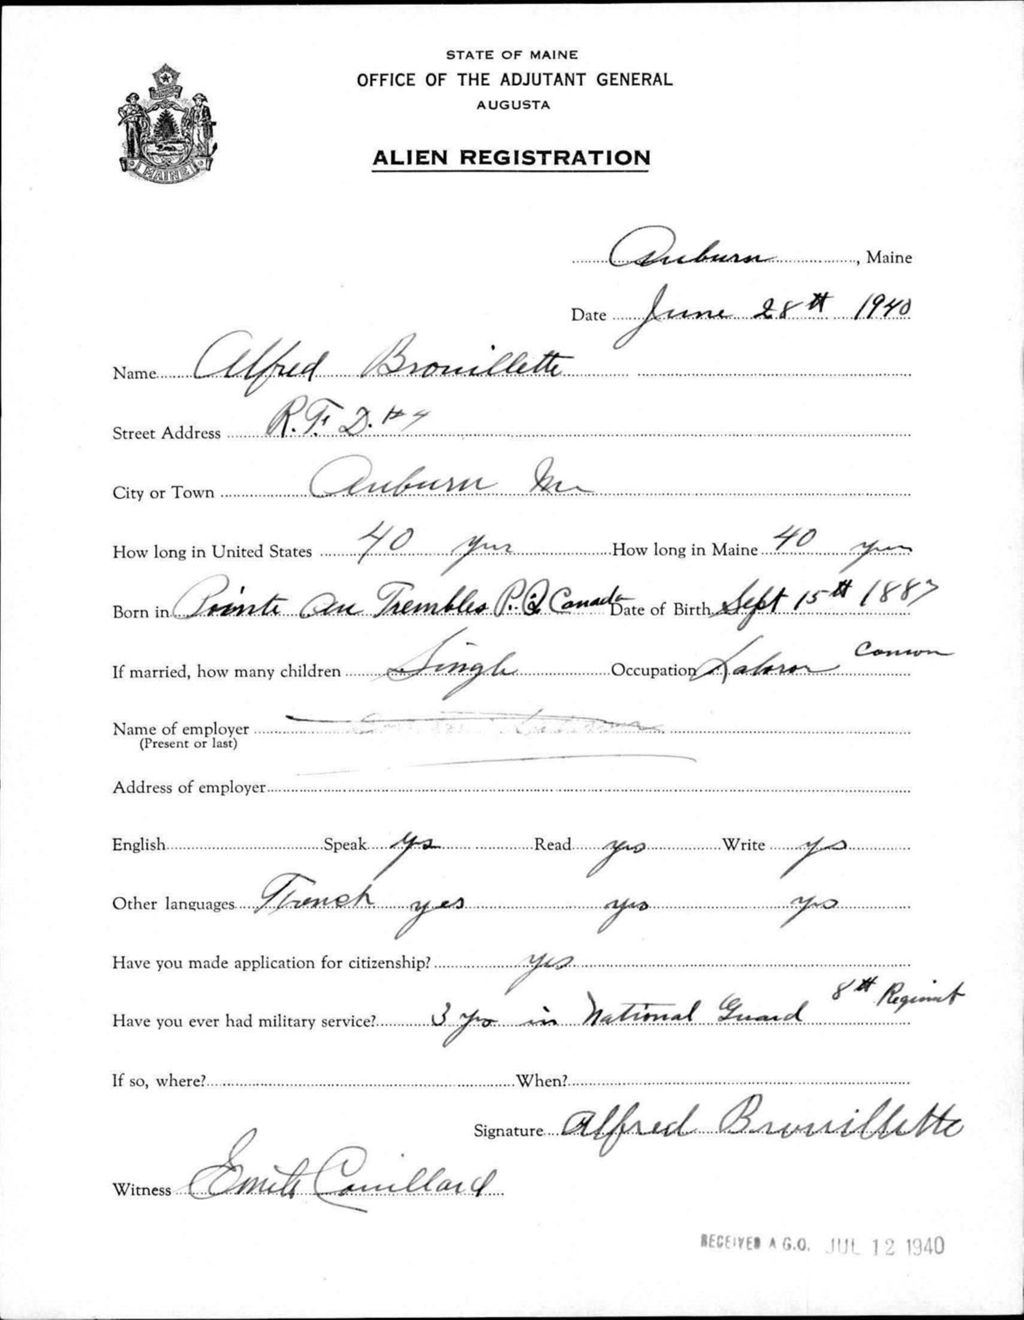 STATE OF MAINE
OFFICE OF THE ADJUTANT GENERAL
AUGUSTA
ALIEN REGISTRATION
MAINE
Auburn, Maine
Date June 28th 1940
Name Alfred Brouillette
Street Address R.F.D. #4
City or Town Auburn Me
How long in United States 40 yrs How long in Maine 40 years
Born in Pointe Au Trembles P.Q Canada Date of Birth Sept 15th 1887
If married, how many children Single Occupation Laborer Common
Name of employer
(Present or last)
Address of employer
English Speak yes Read yes Write yes
Other languages French yes yes yes
Have you made application for citizenship? yes
Have you ever had military service? 3 yrs in National Guard 8th Regiment
If so, where? When?
Signature Alfred Brouillette
Witness Emile Couillard
RECEIVED A.G.O. JUL 12 1940